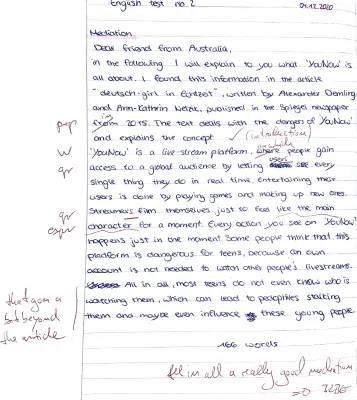 English test no. 2 04.12.2020
Mediation
Dear friend from Australia,
in the following I will explain to you what 'YouNow' is
all about. I found this information in the article
"deutsch-girl in Echtzeit", written by Alexander Demling
and Ann-Kathrin Nezik, published in the Spiegel newspaper
in
from 2015. The text deals with the dangers of YouNow
and explains the concept ✓ (introduction)
pep
'YouNow' is a live-stream platform, where people gain
W
access to a global audience by letting users see every
gr
single thing they do in real time. Entertaining their
users is done by playing games and making up new ones.
Streamers film themselves just to feel like the main
gr
character for a moment. Every action you see on 'YouNow'
expr
happens just in the moment. Some people think that this
platform is dangerous for teens, because an own
account is not needed to watch other people's livestreams.
All in all, most teens do not even know who is
watching them, which can lead to pedophiles stalking
them and maybe even influence these young people.
that goes a
bit beyond
the article
166 words
all in all a really good mediation